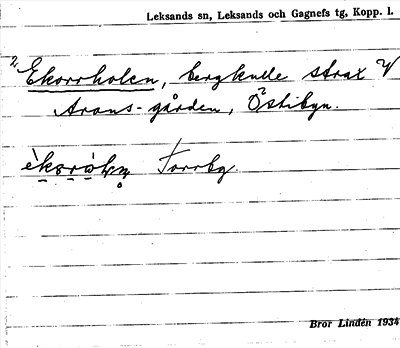 Leksands sn, Leksands och Gagnefs tg, Kopp. l.
2 Ekorrholen, bergkulle strax V
Arons-gården, Östibyn.
Torrby.
Bror Lindén 1934